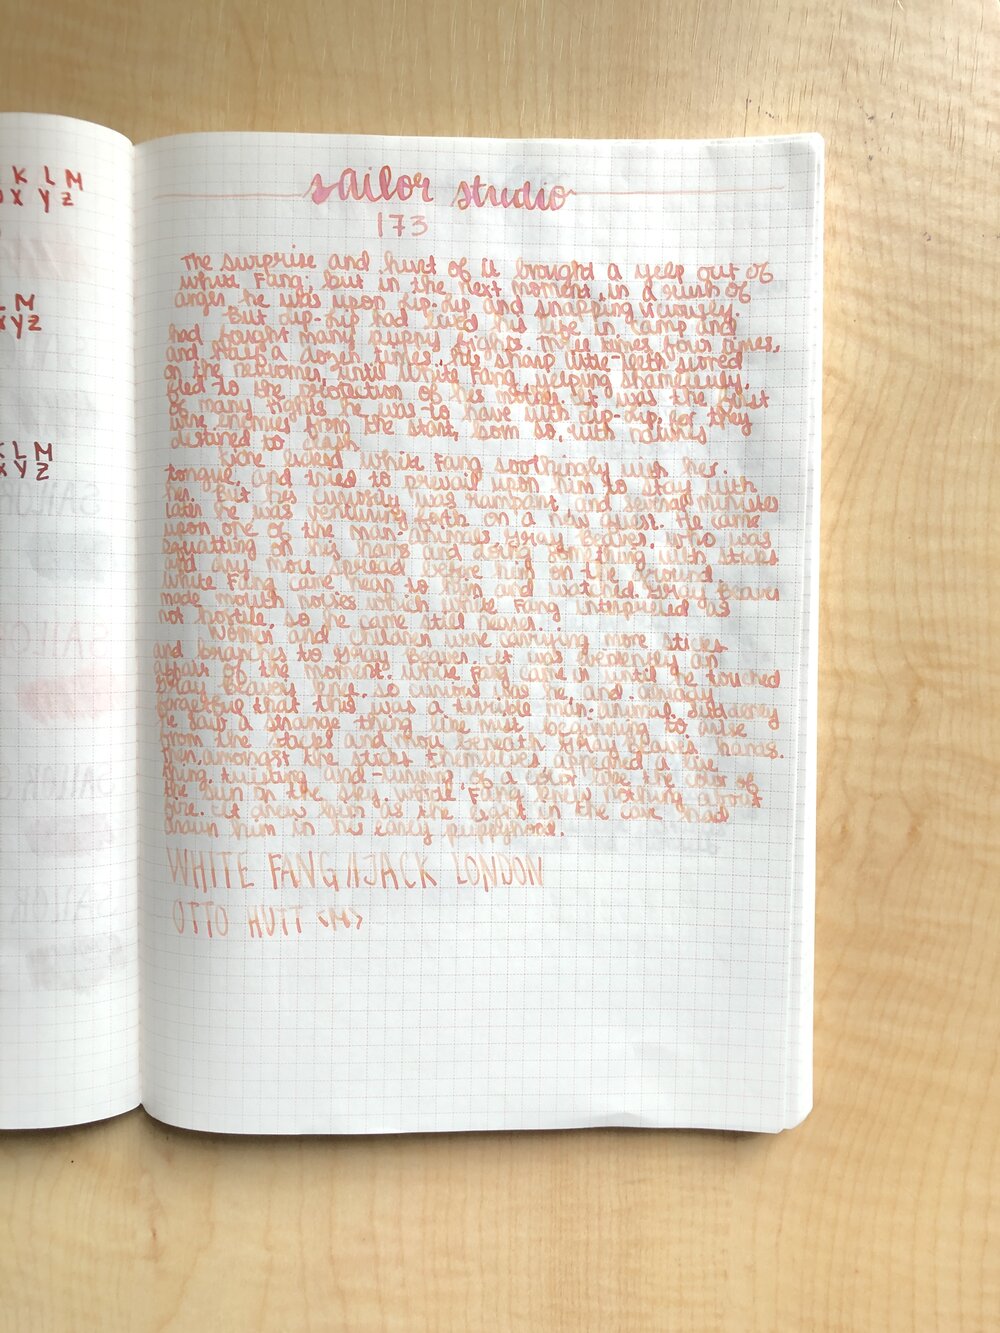 K L M
X Y Z
L M
X Y Z
K L M
X Y Z
SAILOR
SAILOR
SAILOR
SAILOR
sailor studio
173
The surprise and hurt of it brought a yelp out of
White Fang, but in the next moment, in a rush of
anger, he was upon Lip-lip and snapping viciously.
But Lip-lip had lived his life in camp and
had fought many puppy fights. Three times, four times,
and half a dozen times, his sharp little teeth scored
on the newcomer, until White Fang, yelping shamelessly,
fled to the protection of his mother. It was the first
of many fights he was to have with Lip-lip, for they
were enemies from the start, born so, with natures
destined to clash.
Kiche licked White Fang soothingly with her
tongue, and tried to prevail upon him to stay with
her. But his curiosity was rampant and several minutes
later he was venturing forth on a new quest. He came
upon one of the man-animals, Gray Beaver, who was
squatting on his hams and doing something with sticks
and dry moss spread before him on the ground.
White Fang came near to him and watched. Gray Beaver
made mouth noises which White Fang interpreted as
not hostile, so he came still nearer.
Women and children were carrying more sticks
and branches to Gray Beaver. It was evidently an
affair of the moment. White Fang came in until he touched
Gray Beaver's knee, so curious was he, and already
forgetful that this was a terrible man-animal. Suddenly
he saw a strange thing like mist beginning to arise
from the sticks and moss beneath Gray Beaver's hands.
Then, amongst the sticks themselves, appeared a live
thing, twisting and turning, of a color like the color of
the sun in the sky. White Fang knew nothing about
fire. It drew him as the light in the cave had
drawn him in his early puppyhood.
WHITE FANG JACK LONDON
OTTO HUTT <M>